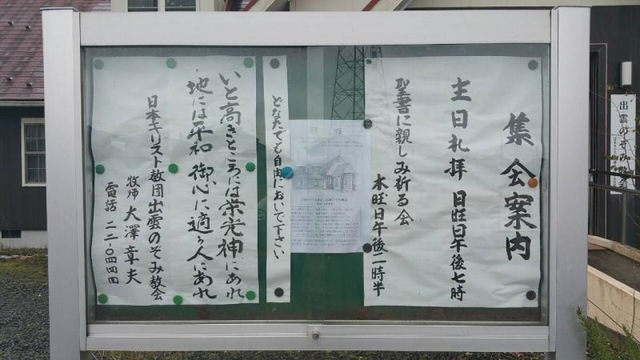 集会案内
主日礼拝 日旺日午後七時
聖書に親しみ祈る会
木旺日午後二時半
週報
どなたでも自由においで下さい
いと高きところには栄光神にあれ
地には平和 御心に適う人にあれ
日本キリスト教団出雲のぞみ教会
牧師 大澤章夫
電話 二二-〇四四四
出雲のぞみ